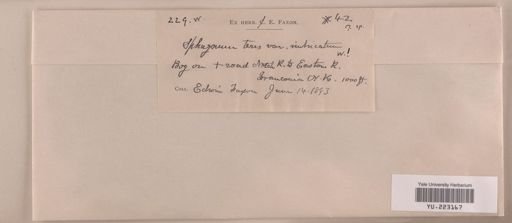 229. W
Ex herb. E. Faxon.
42
Sphagnum teres var. imbricatum
W.!
Bog on road North R. to Easton R.
Franconia N. H. 1000 ft.
Coll. Edwin Faxon June 14 1893
Yale University Herbarium
YU-223167